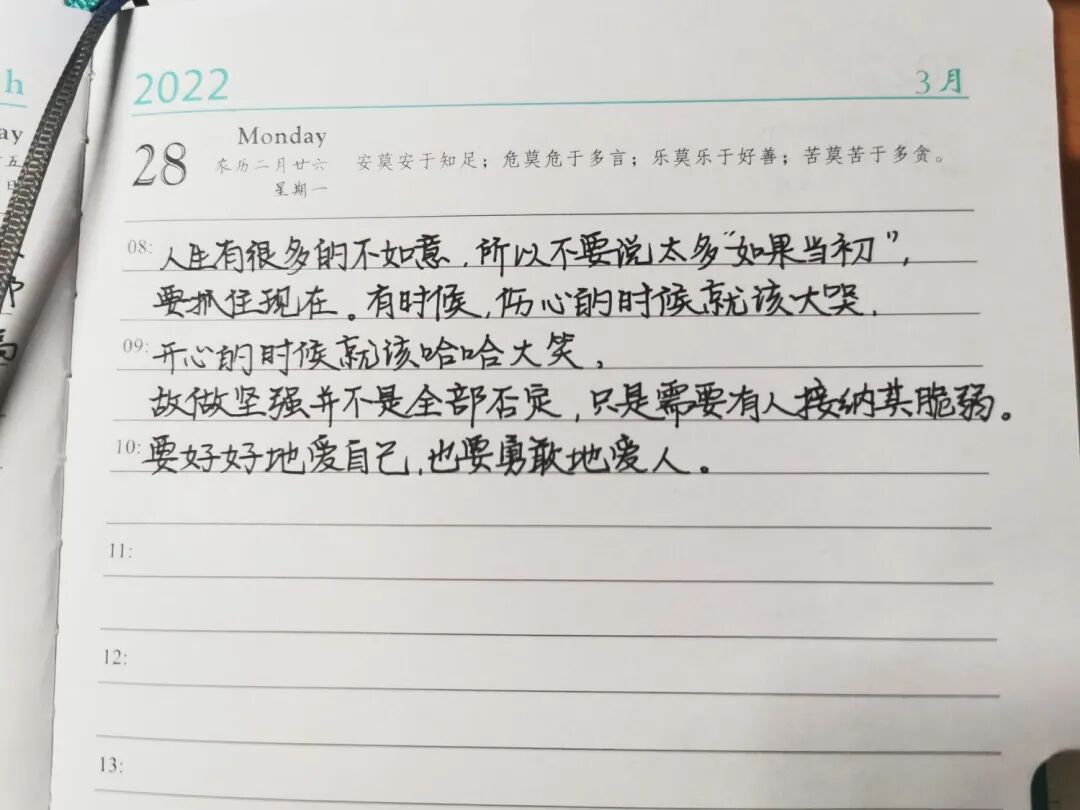 h
2022
3月
ay
28
Monday
农历二月廿六
星期一
安莫安于知足；危莫危于多言；乐莫乐于好善；苦莫苦于多贪。
五
日
08:
人生有很多的不如意，所以不要说太多“如果当初”，
要抓住现在。有时候，伤心的时候就该大哭，
09:
开心的时候就该哈哈大笑，
故做坚强并不是全部否定，只是需要有人接纳其脆弱。
10:
要好好地爱自己，也要勇敢地爱人。
11:
12:
13: